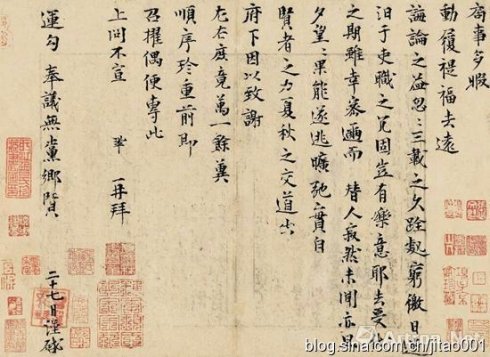 局事多暇
動履禔福去遠
誨論之益忽〻三載之久跧處窮徼日迷
汩于吏職之冗固豈有樂意耶去受代
之期雖幸密邇而替人寂然未聞亦旦
夕望〻果能遂逃曠弛實自
賢者之力夏秋之交道出
府下因以致謝
左右庶竟萬一餘冀
順序珍重前即
召擢偶便專此
上問不宣 鞏 再拜
運勾奉議無黨鄉賢
二十七日謹啓
blog.sina.com.cn/jitao001